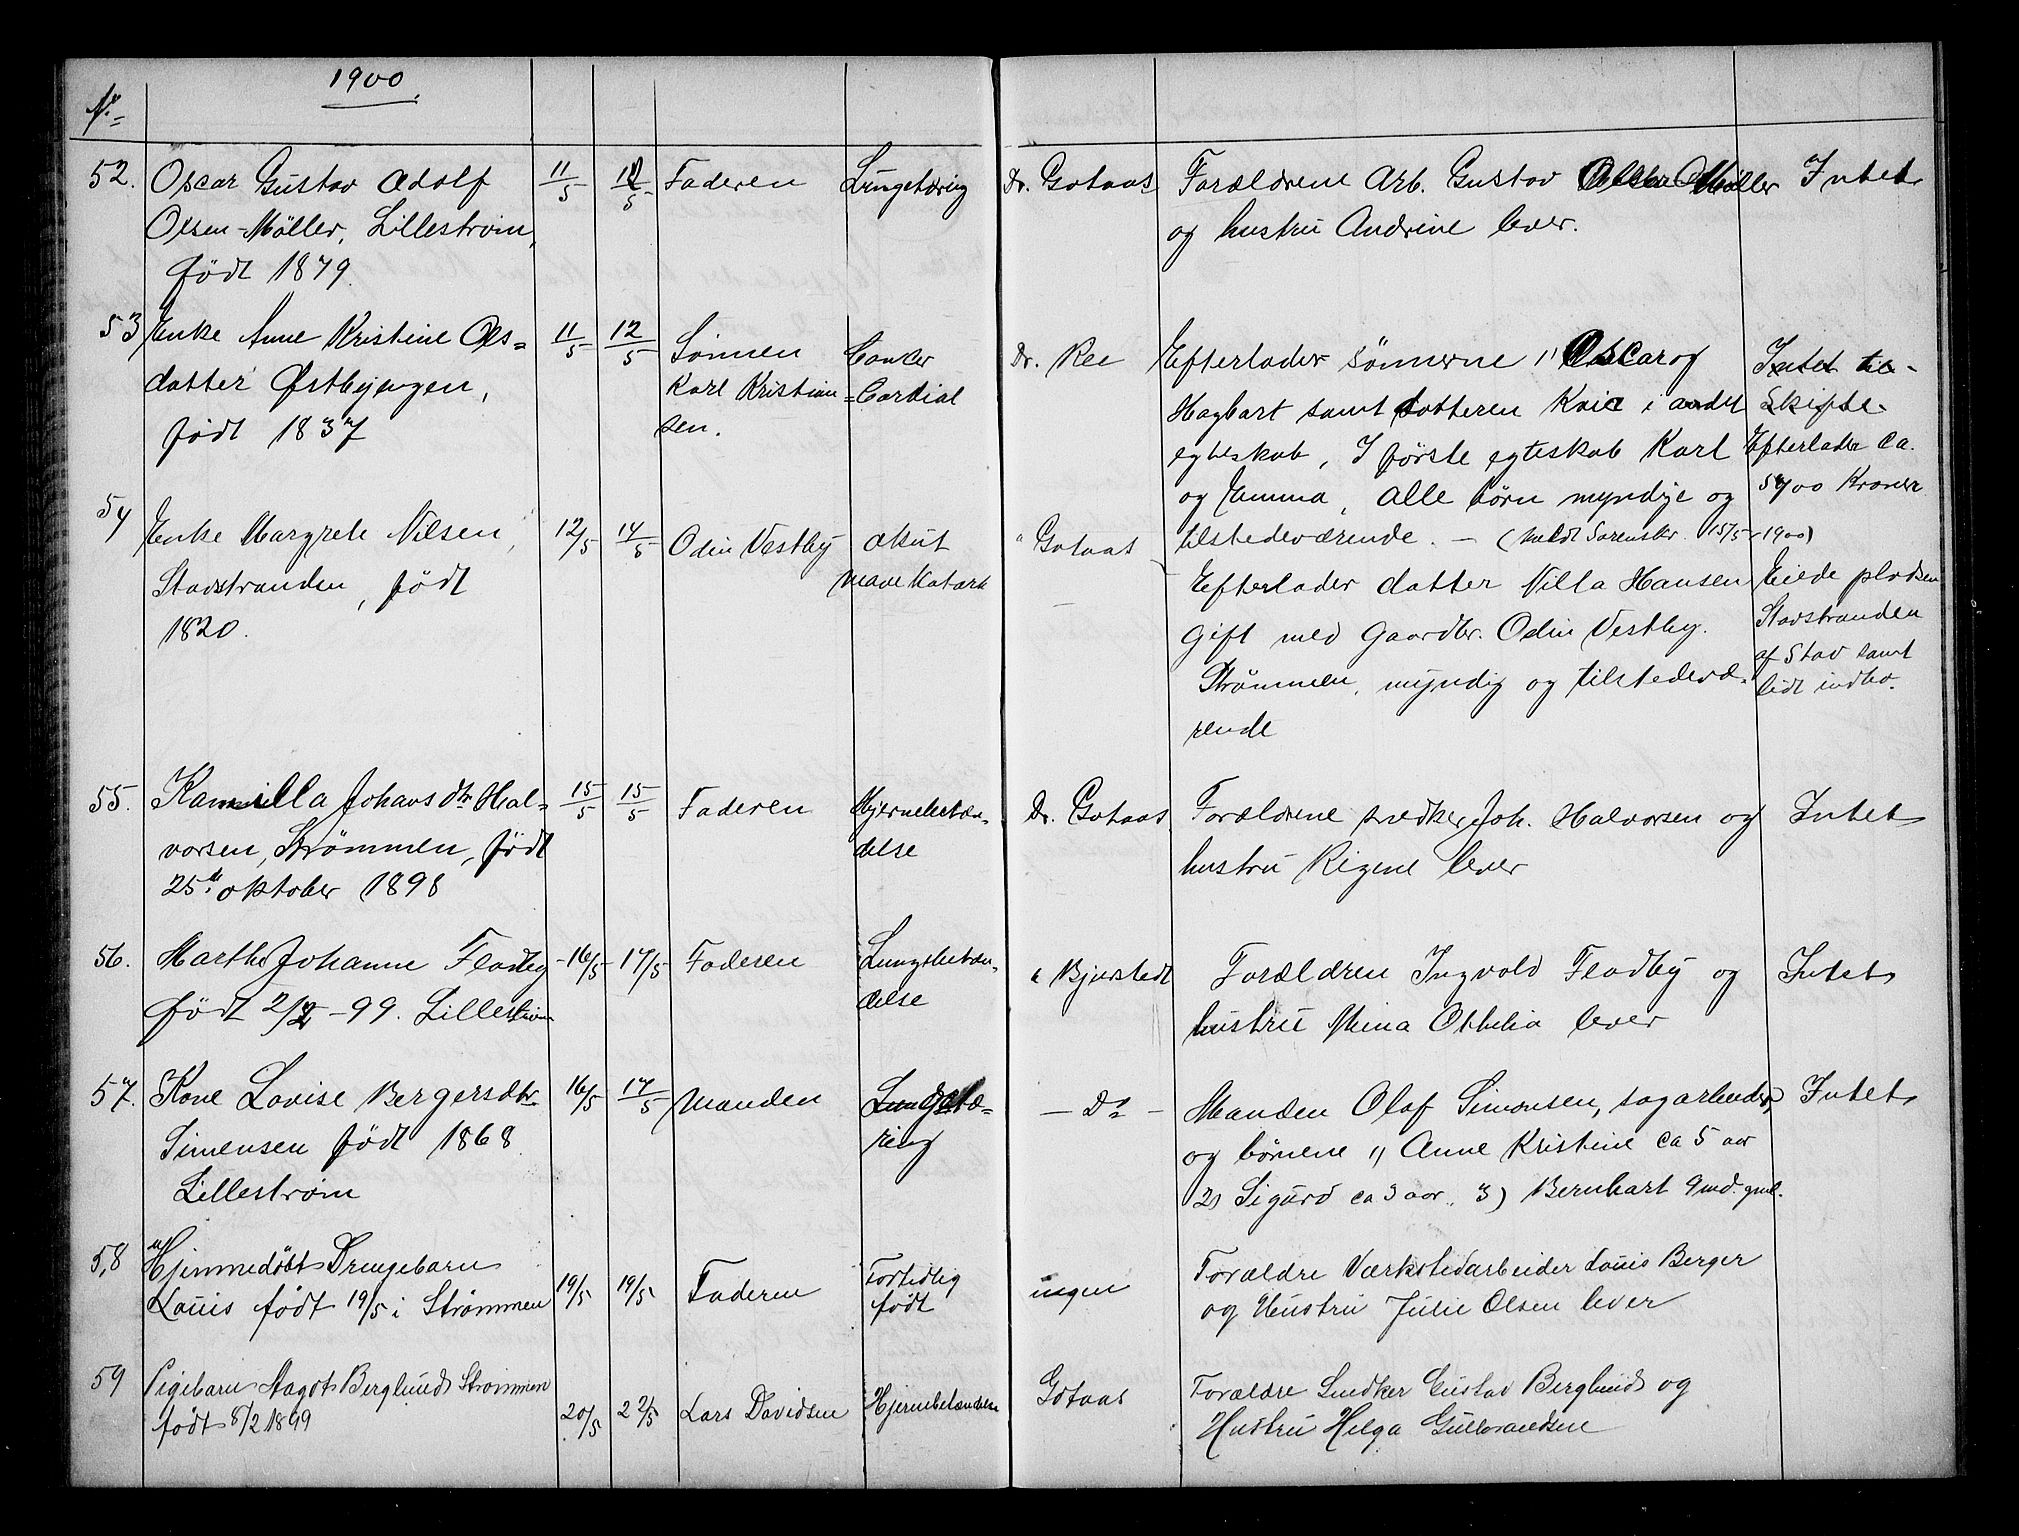 1900
No.
52. Oscar Gustav Adolf 11/5 12/5 Faderen Lungetæring Dr. Gotaas Forældrene Arb. Gustav Olsen Møller Intet
Olsen-Möller, Lillestrøm, og hustru Andrine lever.
født 1879.
53 Enke Anne Kristine Ols= 11/5 12/5 Sønnen Cancer Dr. Ree Efterlader sønnerne 1) Oscar og Intet til
datter Østbyengen, Karl Kristian= Cardial Hagbart samt datteren Kaia i andet Skifte.
født 1837 sen. egteskab, I første egteskab Karl Efterlader ca.
og Emma, Alle børn myndige og Kroner
tilstedeværende. – (meldt Sorenskr. 15/5-1900)
54 Enke Margrete Nilsen, 12/5 14/5 Odin Vestby akut " Gotaas Efterlader datter Nilla Hansen Eiede pladsen
Stavstranden, født mave Katarh gift med Gaardbr. Odin Vestby. Stavstranden
1820. Strømmen, myndig og tilstedevæ- af Stav samt
rende lidt indbo.
55. Kamilla Johansdtr. Hal= 15/5 15/5 Faderen Hjernebetæn- Dr. Gotaas Forældrene snedker Joh. Halvorsen og Intet
vorsen, Strømmen, født delse hustru Rigene lever
25de oktober 1898
56. Marthe Johanne Fladby 16/5 17/5 Faderen Lungebetæn- " Bjerstedt Forældren Ingvald Fladby og Intet
født 2/2-99. Lillestrøm delse hustru Mina Othelia lever
57. Kone Lovise Bergersdtr. 16/5 17/5 Manden Lungetæ= – Do – Manden Olaf Simensen, sagarbeider, Intet
Simensen født 1868. ring og børnene 1) Anne Kristine ca 5 aar
Lillestrøm 2) Sigurd ca 3 aar, 3) Bernhart 9 md. gml.
58 Hjemmedøbt Drengebarn 19/5 19/5 Faderen Fortidlig ingen Forældre Værkstedarbeider Louis Berger
Louis født 19/5 i Strømmen født og Hustru Julie Olsen lever
59 Pigebarn Aagot Berglund Strømmen 20/5 22/5 Lars Davidsen Hjernebetændelse Gotaas Forældre Snedker Gustav Berglund og
født 8/2 1899 Hustru Helga Gulbrandsen